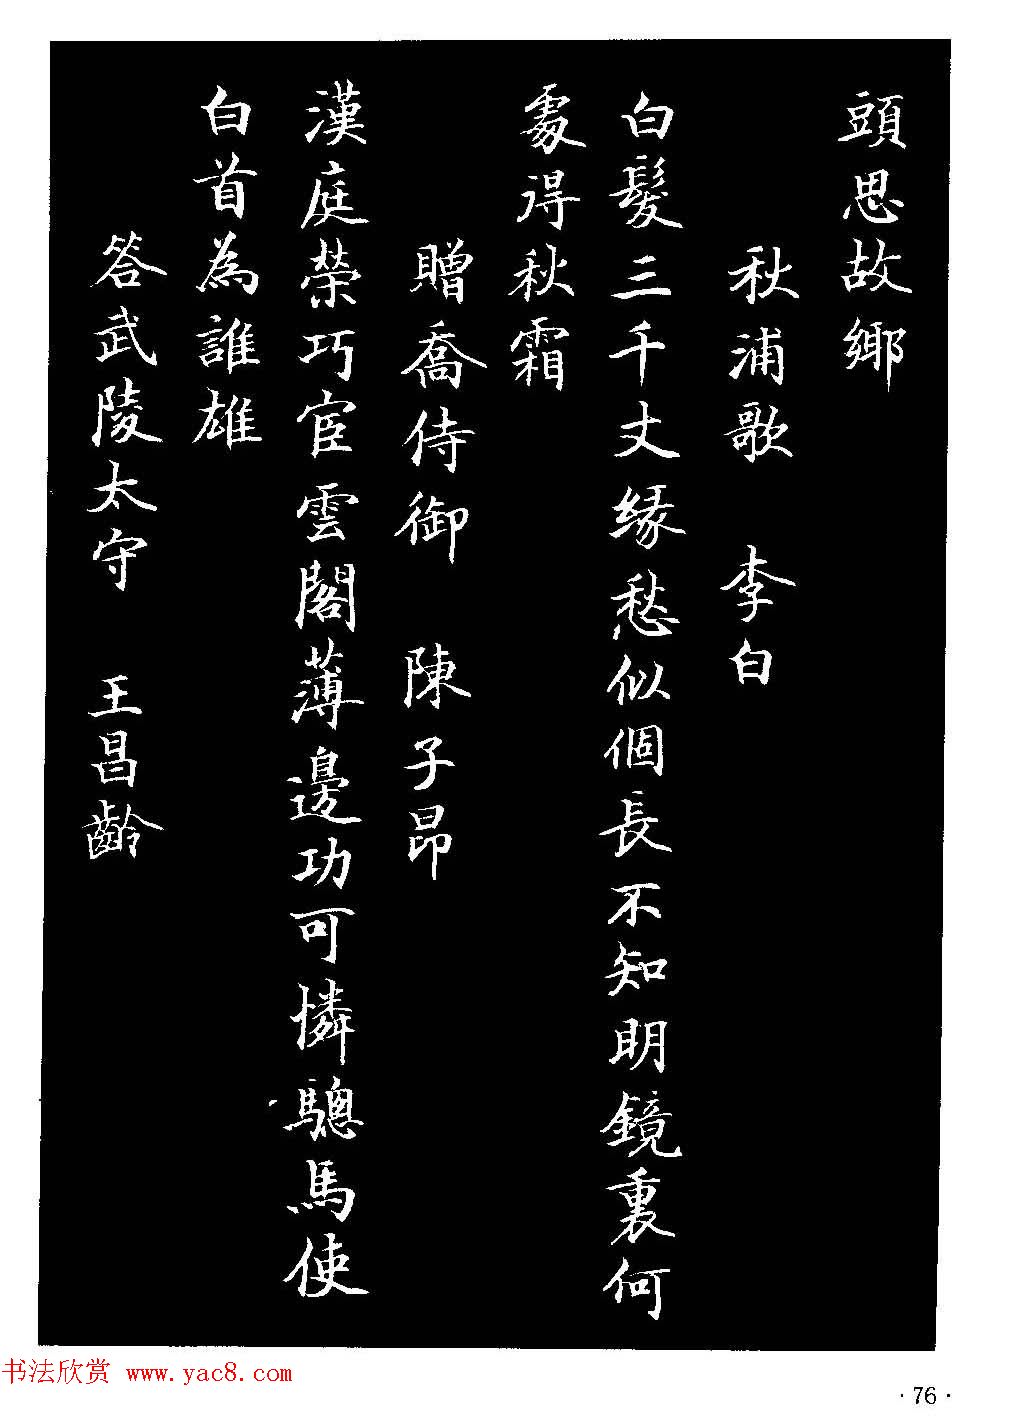 頭思故鄉
秋浦歌 李白
白髮三千丈緣愁似個長不知明鏡裏何
處得秋霜
贈喬侍御 陳子昂
漢庭榮巧宦雲閣薄邊功可憐驄馬使
白首為誰雄
答武陵太守 王昌齡
书法欣赏 www.yac8.com
·76·